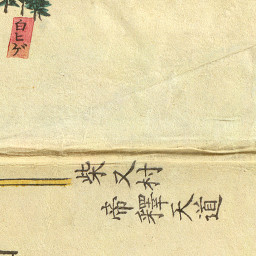 白ヒゲ
柴又村
帝釋天道